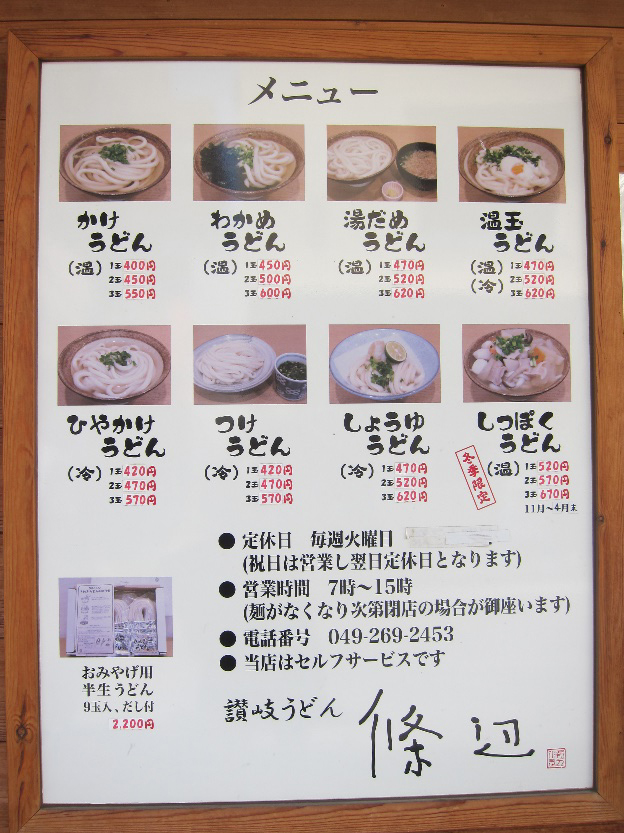 メニュー
かけ
うどん
(温) 1玉400円
2玉450円
3玉550円
わかめ
うどん
(温) 1玉450円
2玉500円
3玉600円
湯だめ
うどん
(温) 1玉470円
2玉520円
3玉620円
温玉
うどん
(温) 1玉470円
(冷) 2玉520円
3玉620円
ひやかけ
うどん
(冷) 1玉420円
2玉470円
3玉570円
つけ
うどん
(冷) 1玉420円
2玉470円
3玉570円
しょうゆ
うどん
(冷) 1玉470円
2玉520円
3玉620円
しっぽく
うどん
冬季限定
(温) 1玉520円
2玉570円
3玉670円
11月~4月末
● 定休日 毎週火曜日
(祝日は営業し翌日定休日となります)
● 営業時間 7時~15時
(麺がなくなり次第閉店の場合が御座います)
● 電話番号 049-269-2453
● 当店はセルフサービスです
おみやげ用
半生うどん
9玉入、だし付
2,200円
讃岐うどん 條辺